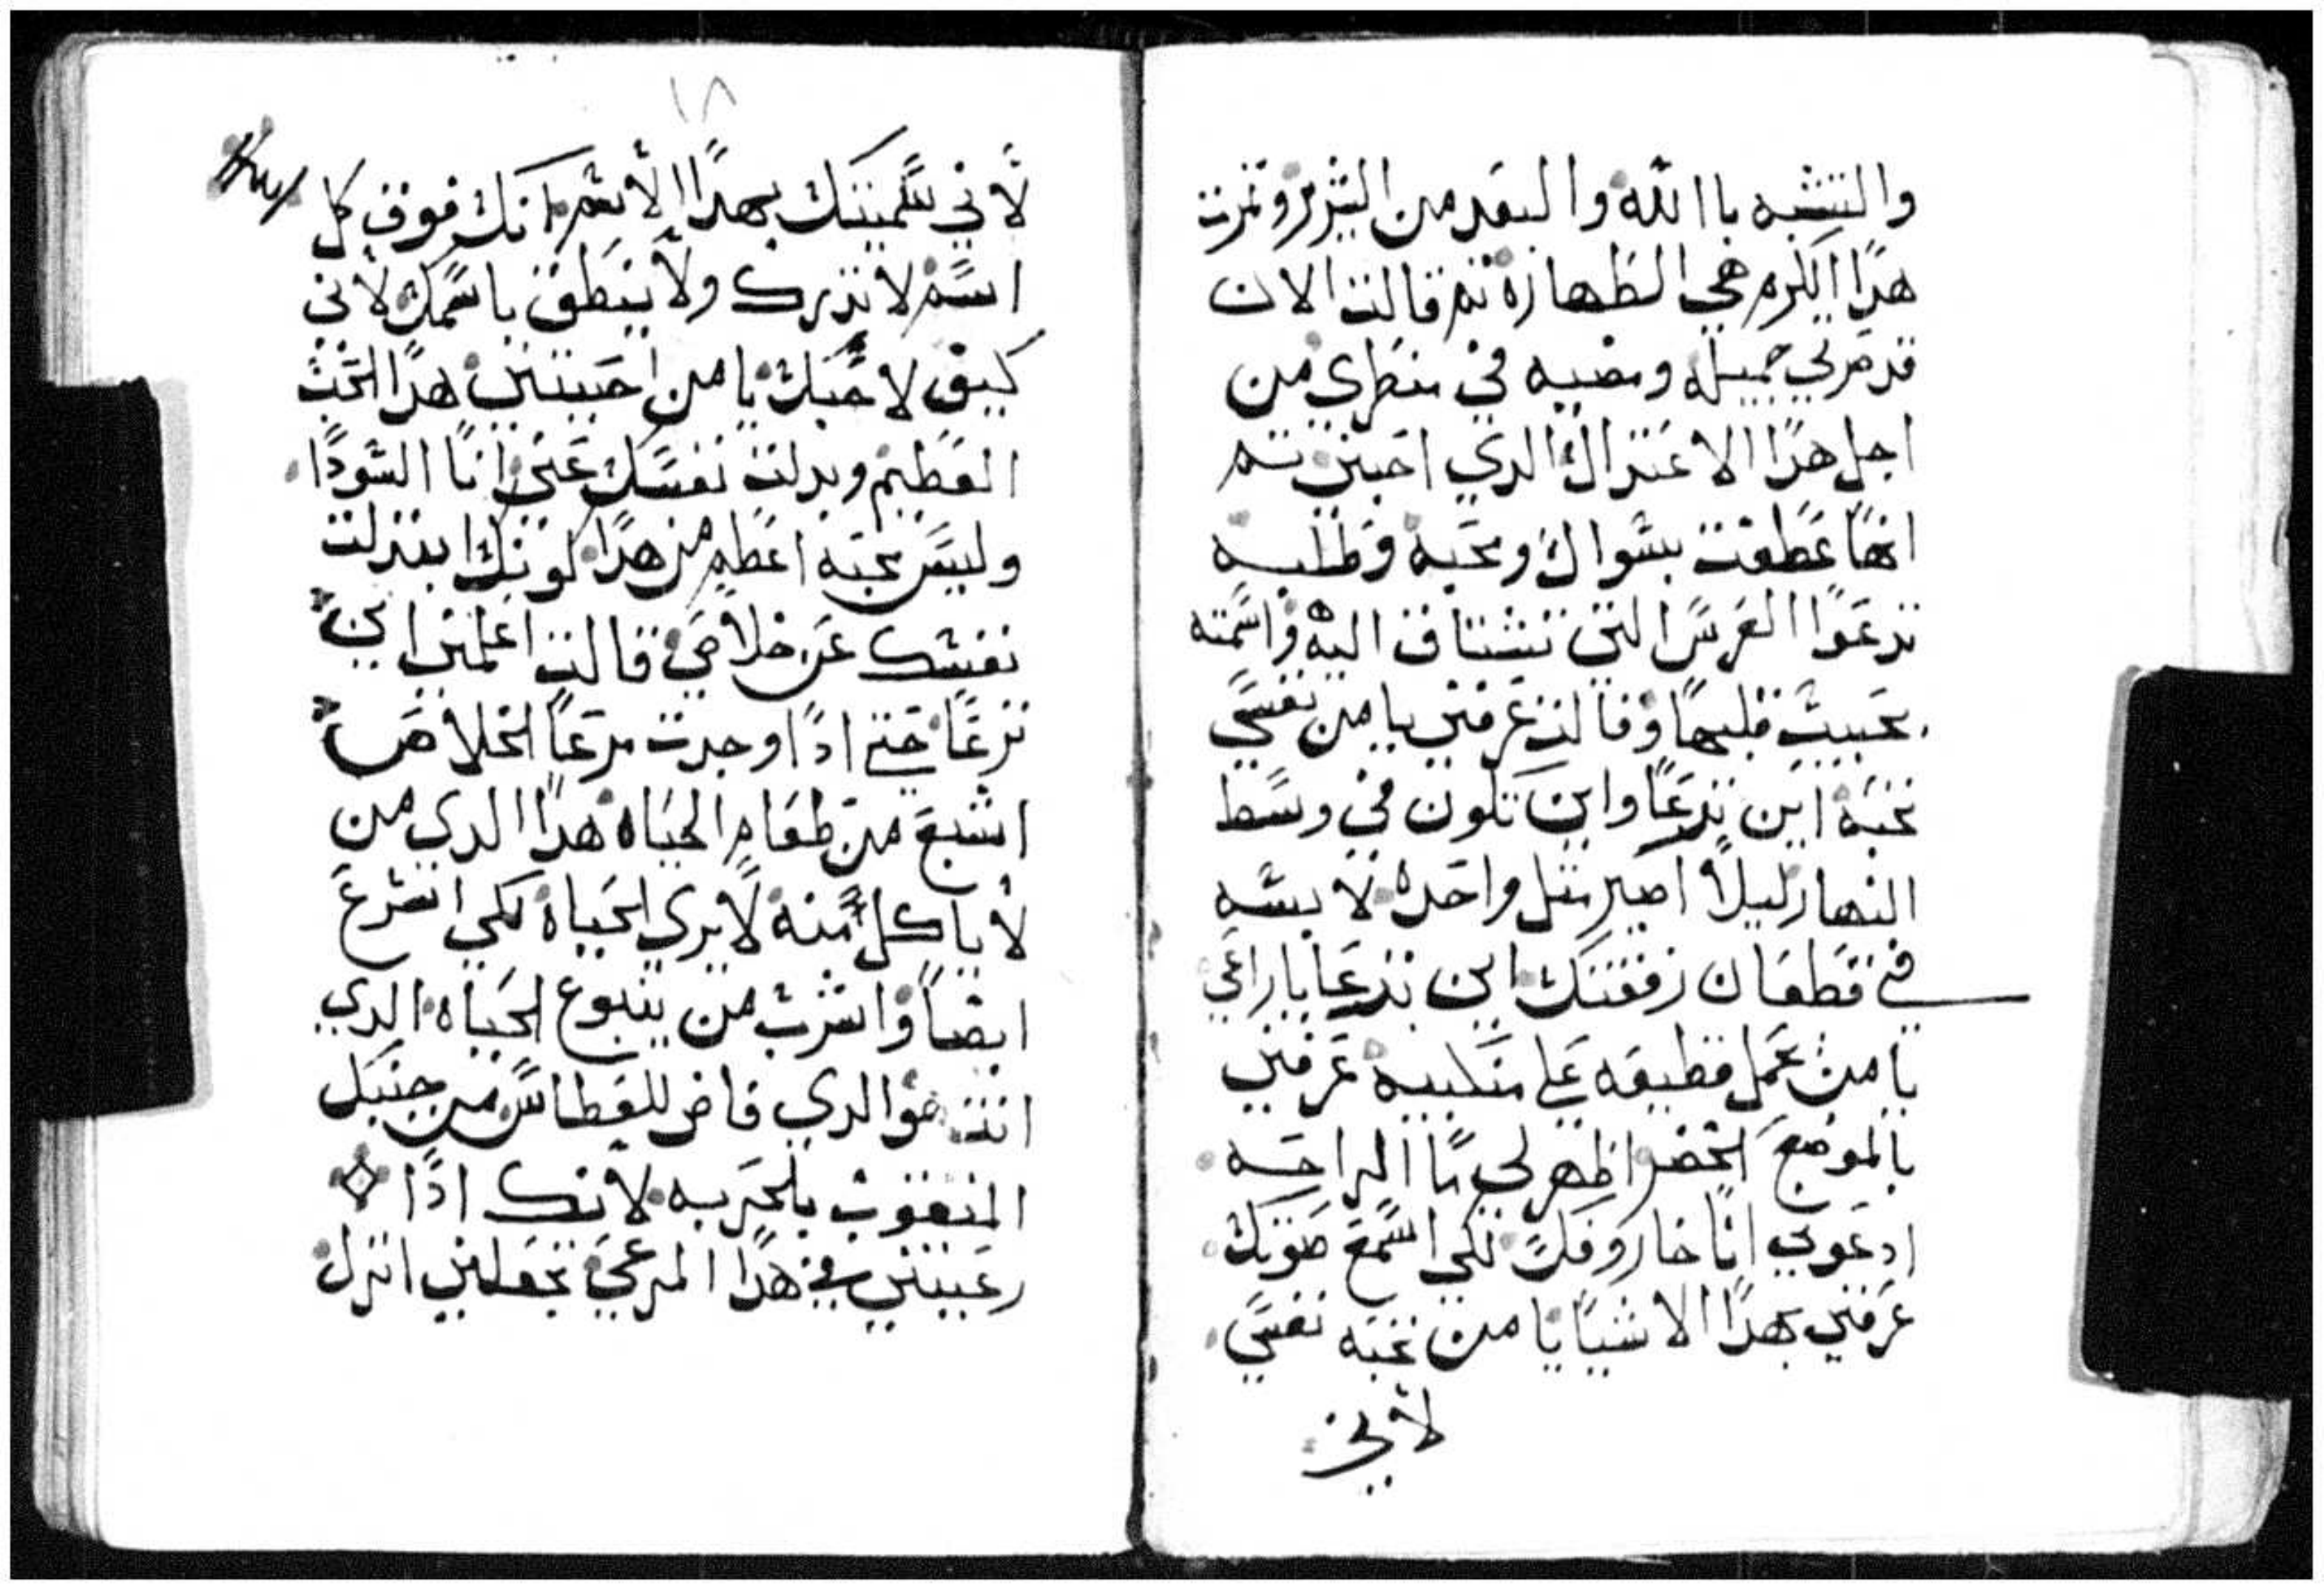 والتشبه باالله والبعد من الشرير وثمرت
هدا الكرم هي الطهاره ثم قالت الان
قد مر لي جميله ومضيه في منظري من
اجل هدا الاعتدال الدي احبني ثم
انها عطفت بسوال ومحبه وطلبه
تدعوا العرس التي تشتاق اليه واسمته
بحبيب قلبها وقالت عرفني يا من نفسي
تحبه اين تدعا واين تكون في وسط
النهار ليلا اصير مثل واحده لابسه
في قطعان رفقتك اين تدعا ياراعي
يا من عمل قطيعه علي منكبيه عرفني
بالموضع الخضر اظهر لي ما الراحه
ادعوني انا خاروفك لكي اسمع صوتك
عرفني بهدا الاشيا يا من تحبه نفسي
لاني
١٨
لاني سميتك بهدا الاسم انك فوق كل
اسم لا تدرك ولا ينطق باسمك لاني
كيف لا احبك يا من احببتني هدا الحب
العظيم وبدلت نفسك عني انا السودا
وليس محبه اعظم من هدا كونك ابتدلت
نفسك عن خلاصي قالت اعلمني اين
ترعا حتي ادا وجدت مرعا الخلاص
اشبع من طعام الحياه هدا الدي من
لا ياكل منه لا يري الحياه لكي اسرع
ايضا واشرب من ينبوع الحياه الدي
انت هوالدي فاض للعطاس من جنبك
المنقوب بالحربه لانك ادا
رعيتني في هدا المرعي تجعلني انزل